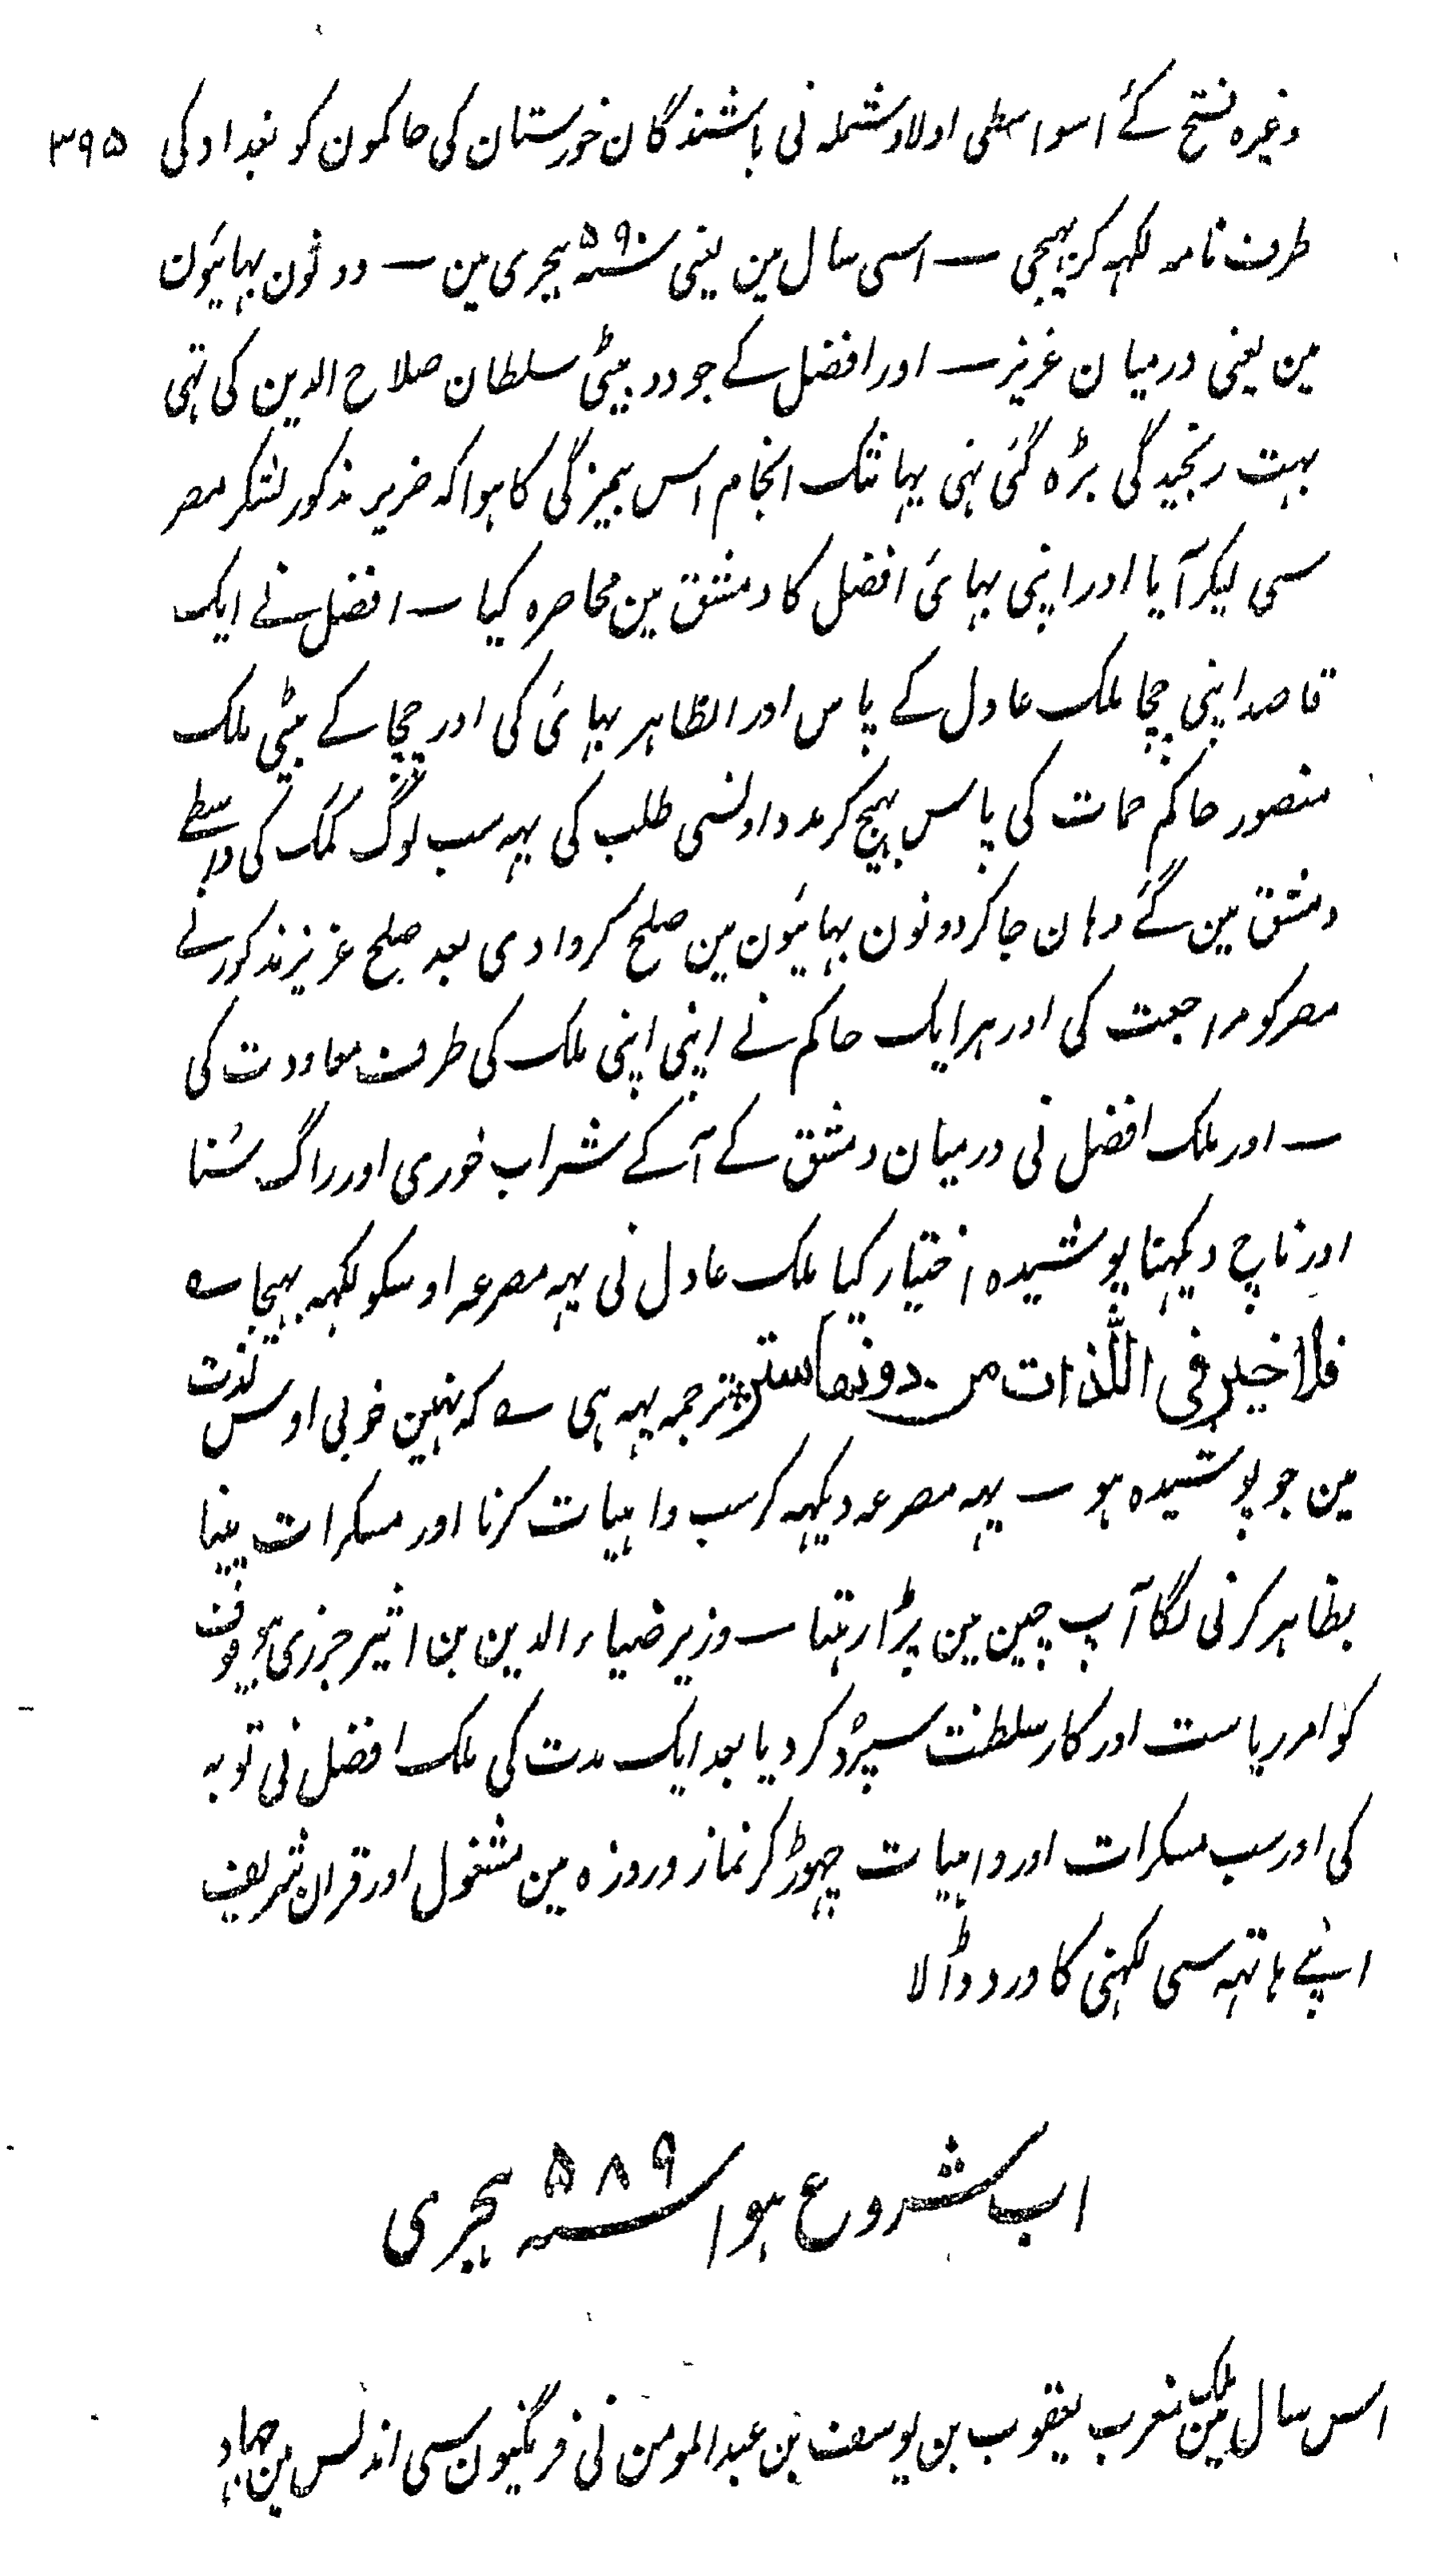 وغیرہ فتح کئے اسواسطی اولاد شملہ نی باشندگان خورستان کی حاکمون کو بغداد کی ۳۹۵
طرف نامہ لکہہ کر بہیجی ــ اسی سال مین یعنی سنہ ۵۹۰ ہجری مین ــ دونون بہائیون
مین یعنی درمیان عزیز ــ اور افضل کے جو دو بیٹی سلطان صلاح الدین کی تہی
بہت رنجیدگی بڑہ گئی تہی یہانتک انجام اس بیمزگی کا ہوا کہ عزیز مذکور لشکر مصر
سی لیکر آیا اور اپنی بہائی افضل کا دمشق مین محاصرہ کیا ــ افضل نے ایک
قاصد اپنی چچا ملک عادل کے پاس اور الظاہر بہائی کی اور چچا کے بیٹی ملک
منصور حاکم حمات کی پاس بہیج کر مدد اونسی طلب کی یہہ سب لوگ کمک کی واسطے
دمشق مین گئے وہان جاکر دونون بہائیون مین صلح کروادی بعد صلح عزیز مذکور نے
مصر کو مراجعت کی اور ہر ایک حاکم نے اپنی اپنی ملک کی طرف معاودت کی
ــ اور ملک افضل نی درمیان دمشق کے آکے شراب خوری اور راگ سُننا
اور ناچ دیکہنا پوشیدہ اختیار کیا ملک عادل نی یہہ مصرعہ اوسکو لکہہ بہیجا ے
فلا خیر فی اللّذات من دونها ستر * ترجمہ یہہ ہی ے کہ نہین خوبی اوس لذت
مین جو پوشیدہ ہو ــ یہہ مصرعہ دیکہہ کر سب واہیات کرنا اور مسکرات پینا
بظاہر کرنی لگا آپ چین مین پڑا رہتا ــ وزیر ضیاء الدین بن اثیر جزری
کو امر ریاست اور کار سلطنت سپرد کردیا بعد ایک مدت کی ملک افضل نی توبہ
کی اور سب مسکرات اور واہیات چہوڑ کر نماز و روزہ مین مشغول اور قران شریف
اپنے ہاتہہ سی لکہنی کا ورد ڈالا
اب شروع ہوا سنہ ۵۸۹ ہجری
اس سال مین ملک مغرب یعقوب بن یوسف بن عبدالمومن نی فرنگیون سی اندلس مین جہاد